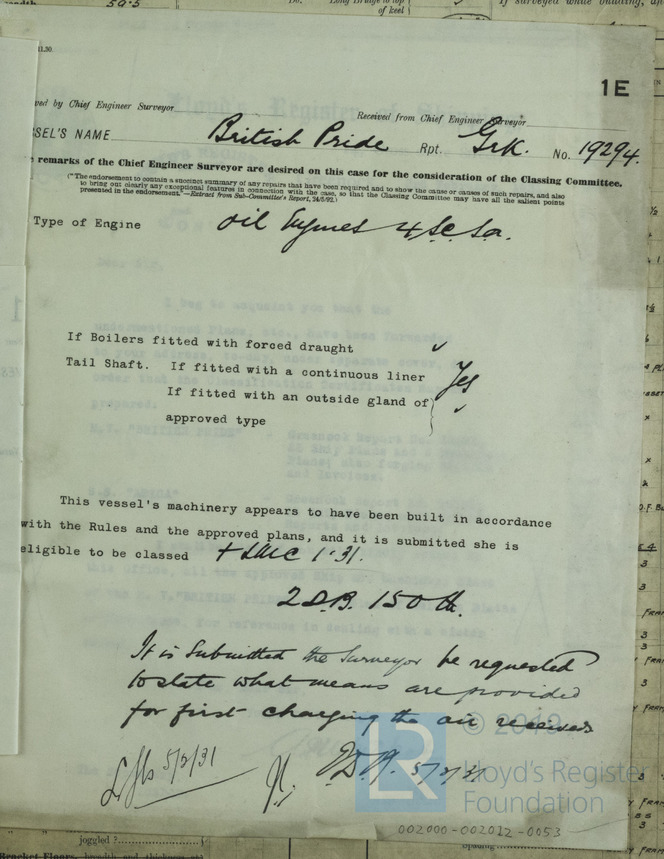 59.5
of keel
11.30.
1E
ved by Chief Engineer Surveyor
Received from Chief Engineer Surveyor
SEL'S NAME British Pride Rpt. Grk. No. 19294.
remarks of the Chief Engineer Surveyor are desired on this case for the consideration of the Classing Committee.
("The endorsement to contain a succinct summary of any repairs that have been required and to show the cause or causes of such repairs, and also
to bring out clearly any exceptional features in connection with the case, so that the Classing Committee may have all the salient points
presented in the endorsement."—Extract from Sub-Committee's Report, 24/5/92.)
Type of Engine oil Engines 4 S.C. S.a.
If Boilers fitted with forced draught
Tail Shaft. If fitted with a continuous liner Yes
If fitted with an outside gland of
approved type
This vessel's machinery appears to have been built in accordance
with the Rules and the approved plans, and it is submitted she is
eligible to be classed + LMC 1.31.
2 D.B. 150 lb.
It is submitted the Surveyor be requested
to state what means are provided
for first charging the air receivers
5/2/31
5/2/31
LR
Lloyd's Register
Foundation
002000-002012-0053
joggled ?